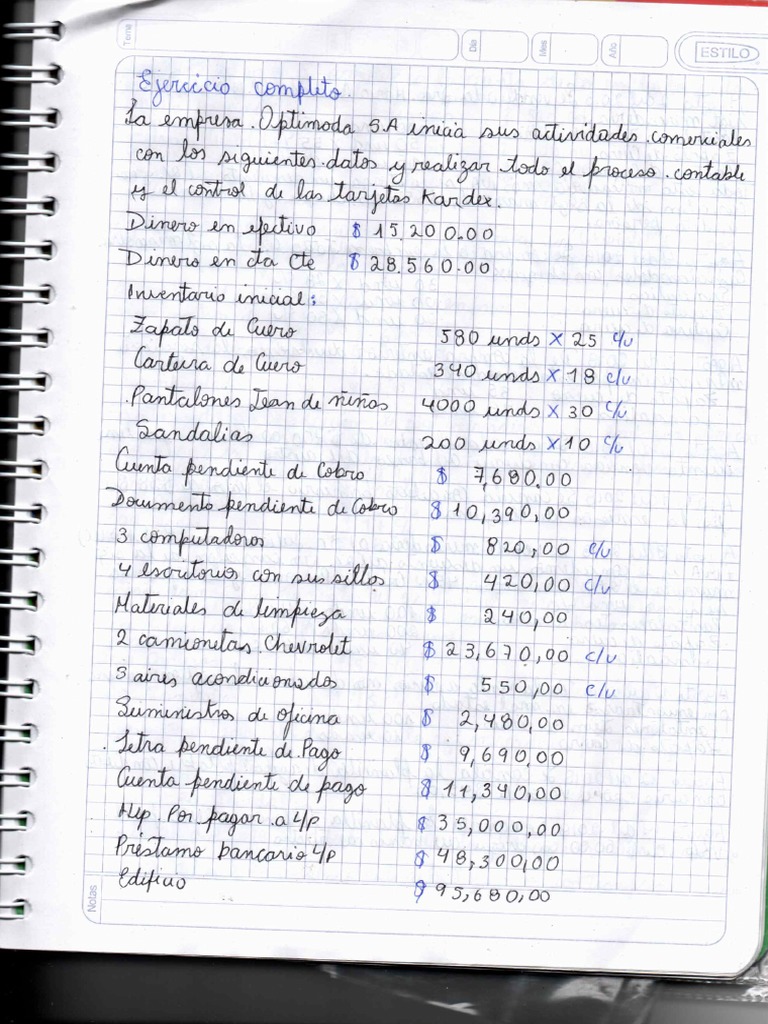 Tema
Día
Mes
Año
ESTILO
Ejercicio completo.
La empresa Optimoda S.A inicia sus actividades comerciales
con los siguientes datos y realizar todo el proceso contable
y el control de las tarjetas Kardex.
Dinero en efectivo $ 15.200.00
Dinero en cta Cte $ 28.560.00
Inventario inicial:
Zapato de Cuero 580 unds x 25 c/u
Cartera de Cuero 340 unds x 18 c/u
Pantalones Jean de niños 4000 unds x 30 c/u
Sandalias 200 unds x 10 c/u
Cuenta pendiente de Cobro $ 7,680.00
Documento pendiente de Cobro $ 10,390,00
3 computadoras $ 820,00 c/u
4 escritorios con sus sillas $ 420,00 c/u
Materiales de limpieza $ 240,00
2 camionetas Chevrolet $ 23,670,00 c/u
3 aires acondicionados $ 550,00 c/u
Suministros de oficina $ 2,480,00
Letra pendiente de Pago $ 9,690,00
Cuenta pendiente de pago $ 11,340,00
Hip. Por pagar a L/P $ 35,000,00
Préstamo bancario L/P $ 48,300,00
Edificio $ 95,680,00
Notas